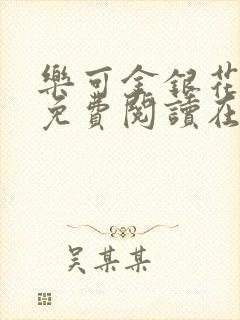 樂可金銀花
免費閱讀在
吴某某